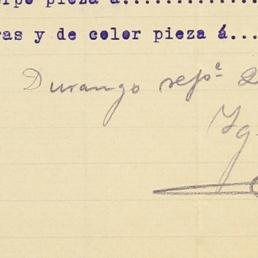 pieza á..............
ras y de color pieza á...
Durango sepe 2
Ig